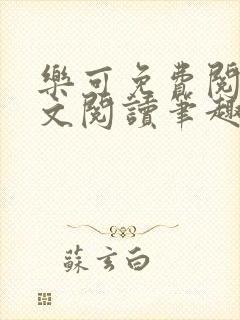 樂可免費閱
文閱讀筆趣
蘇玄白